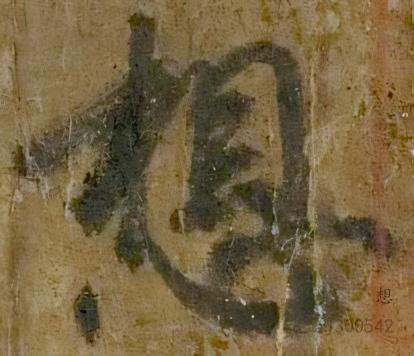 想
想
300542